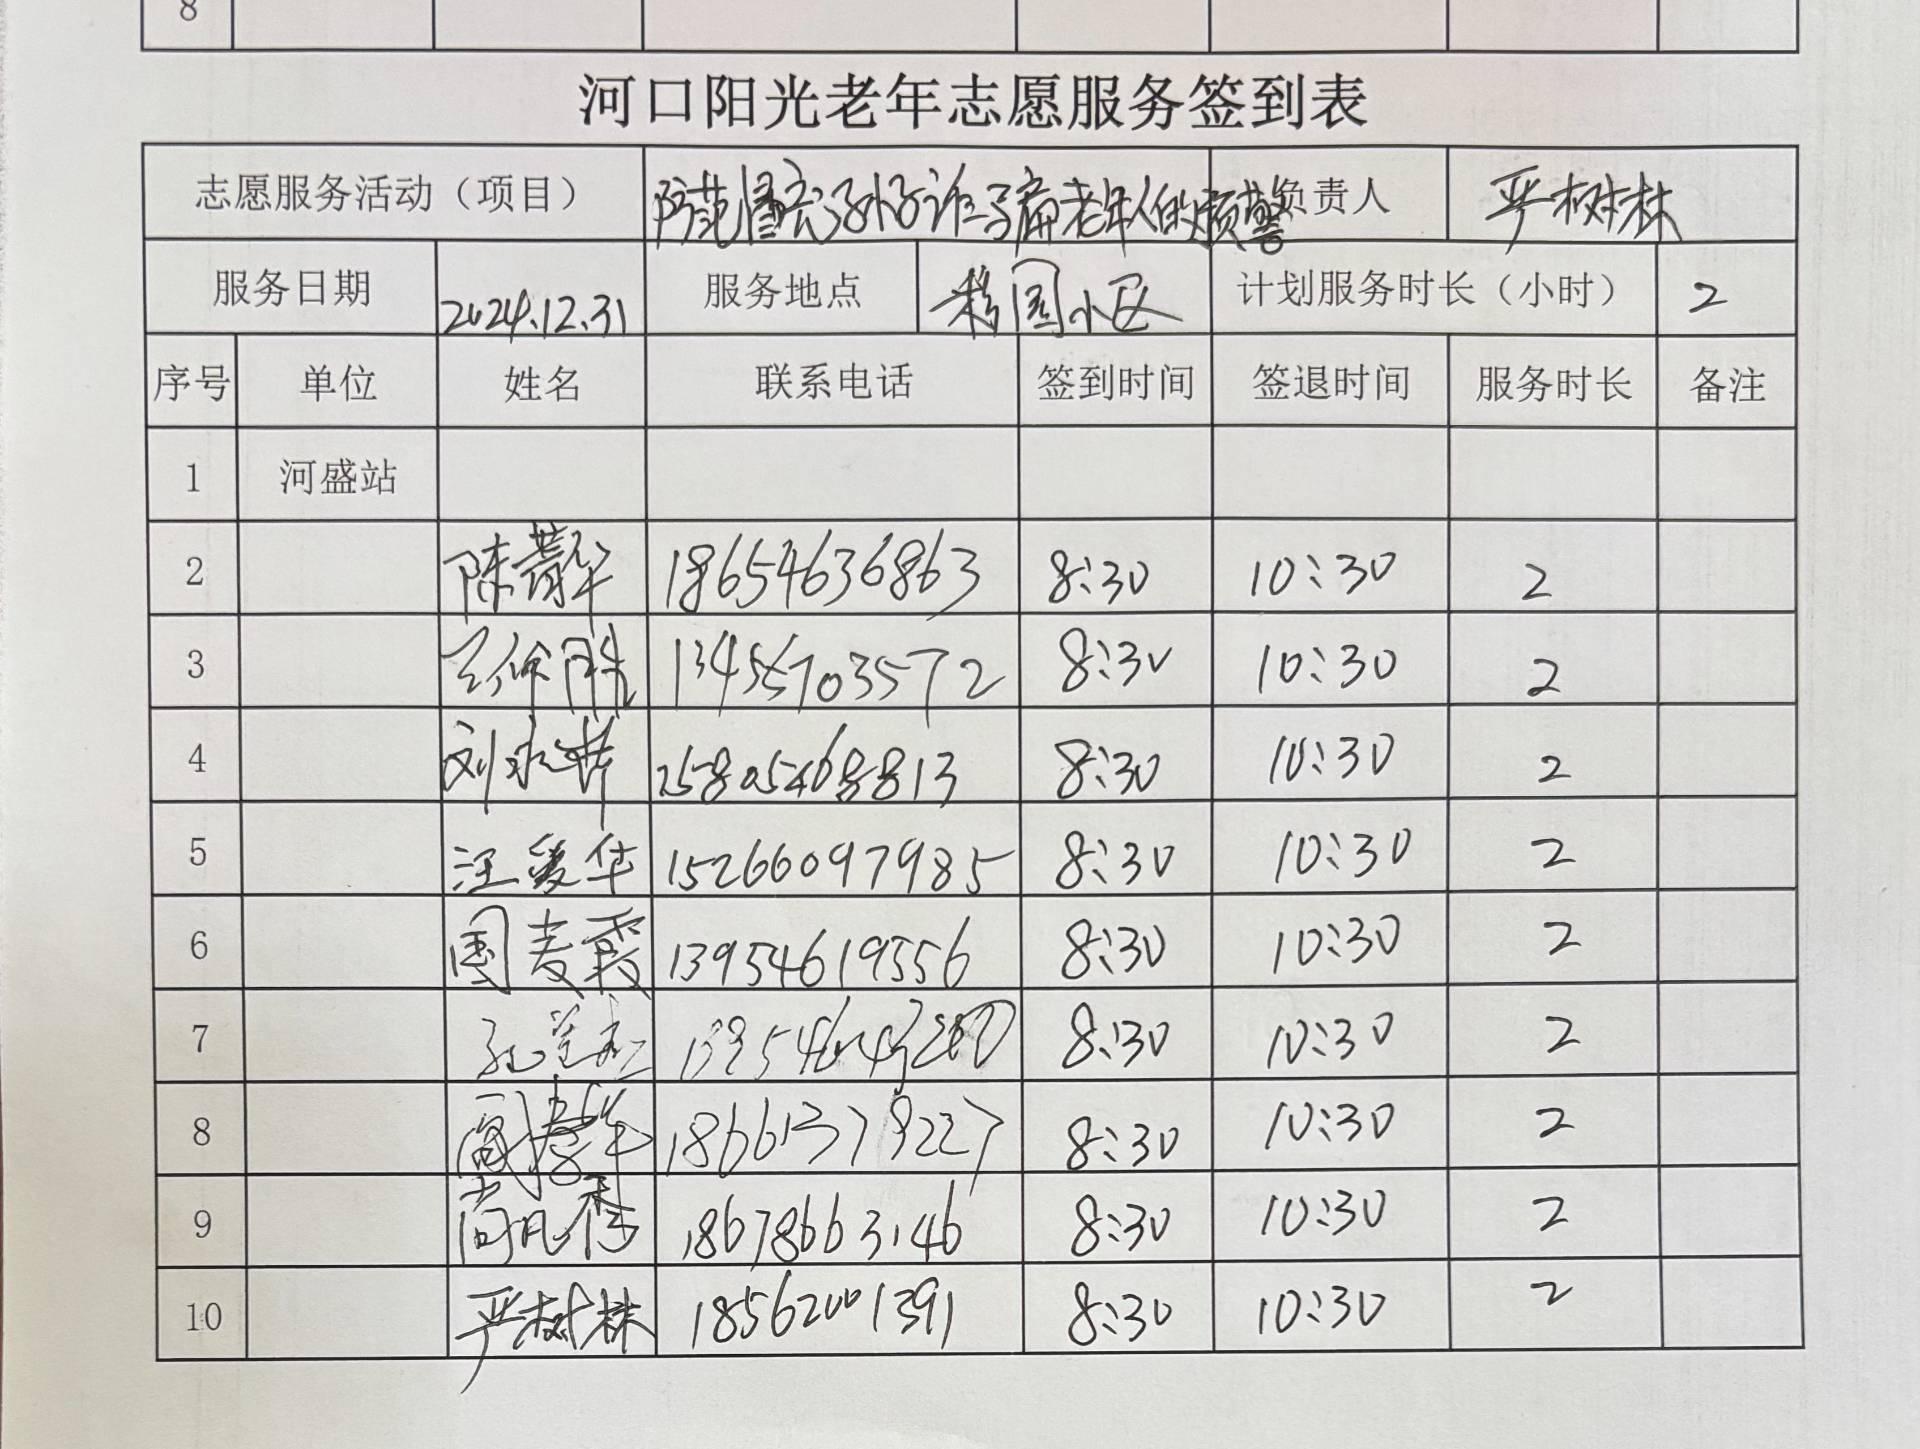 8
河口阳光老年志愿服务签到表
志愿服务活动（项目） 防范 诈骗老年人的预警 负责人 严树林
服务日期 2024.12.31 服务地点 园小区 计划服务时长（小时） 2
序号 单位 姓名 联系电话 签到时间 签退时间 服务时长 备注
1 河盛站
2 陈菁华 18654636863 8:30 10:30 2
3 8:30 10:30 2
4 刘 8:30 10:30 2
5 汪爱华 15266097985 8:30 10:30 2
6 13954619556 8:30 10:30 2
7 8:30 10:30 2
8 18661379227 8:30 10:30 2
9 尚凡香 18678663146 8:30 10:30 2
10 严树林 18562001391 8:30 10:30 2